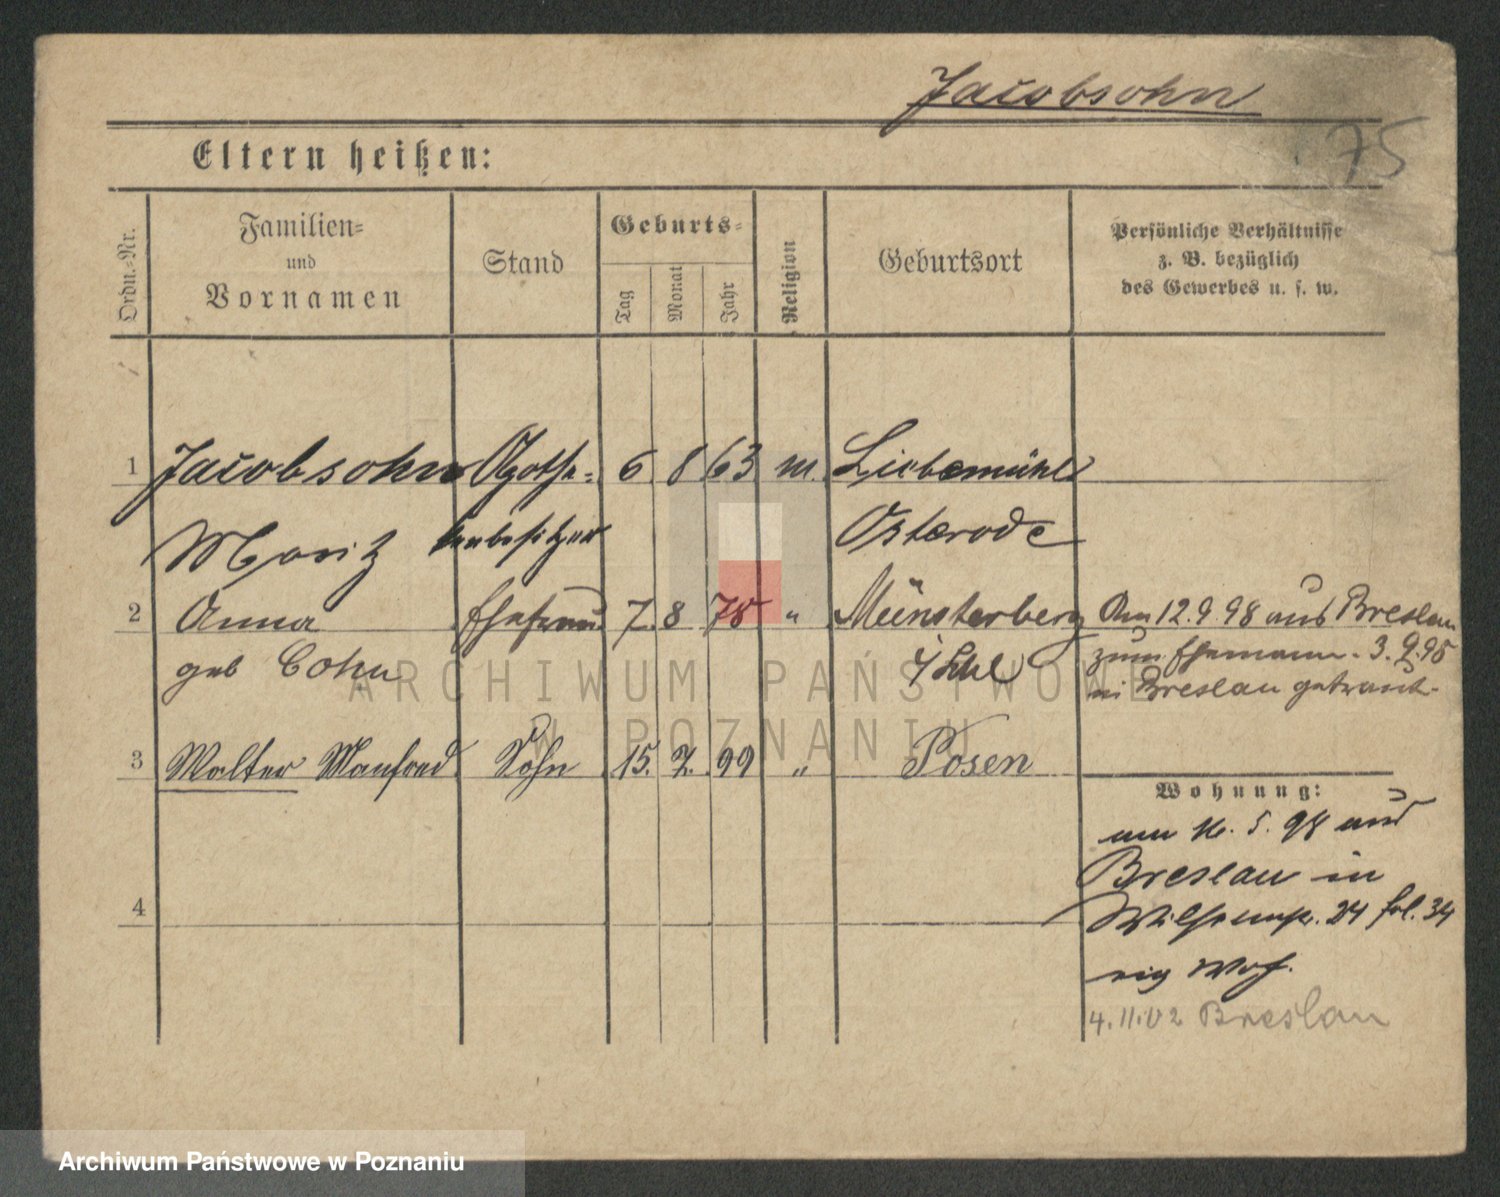 Jacobsohn
75
Eltern heißen:
Ordn.-Nr.
Familien-
und
Vornamen
Stand
Geburts-
Tag
Monat
Jahr
Religion
Geburtsort
Persönliche Verhältnisse
z. B. bezüglich
des Gewerbes u. s. w.
1 Jacobsohn Apothe- 6 8 63 m. Liebemühl
Moritz kenbesitzer Osterode
2 Anna Ehefrau 7. 8 78 " Münsterberg Am 12.9.98 aus Breslau
geb Cohn i/Schl zum Ehemann. 3.9.98
in Breslau getraut.
3 Walter Manfred Sohn 15. 7. 99 " Posen
Wohnung:
am 16. 5. 98 aus
Breslau in
24 fol. 34
4
4.11.02 Breslau
ARCHIWUM PAŃSTWOWE
W POZNANIU
Archiwum Państwowe w Poznaniu